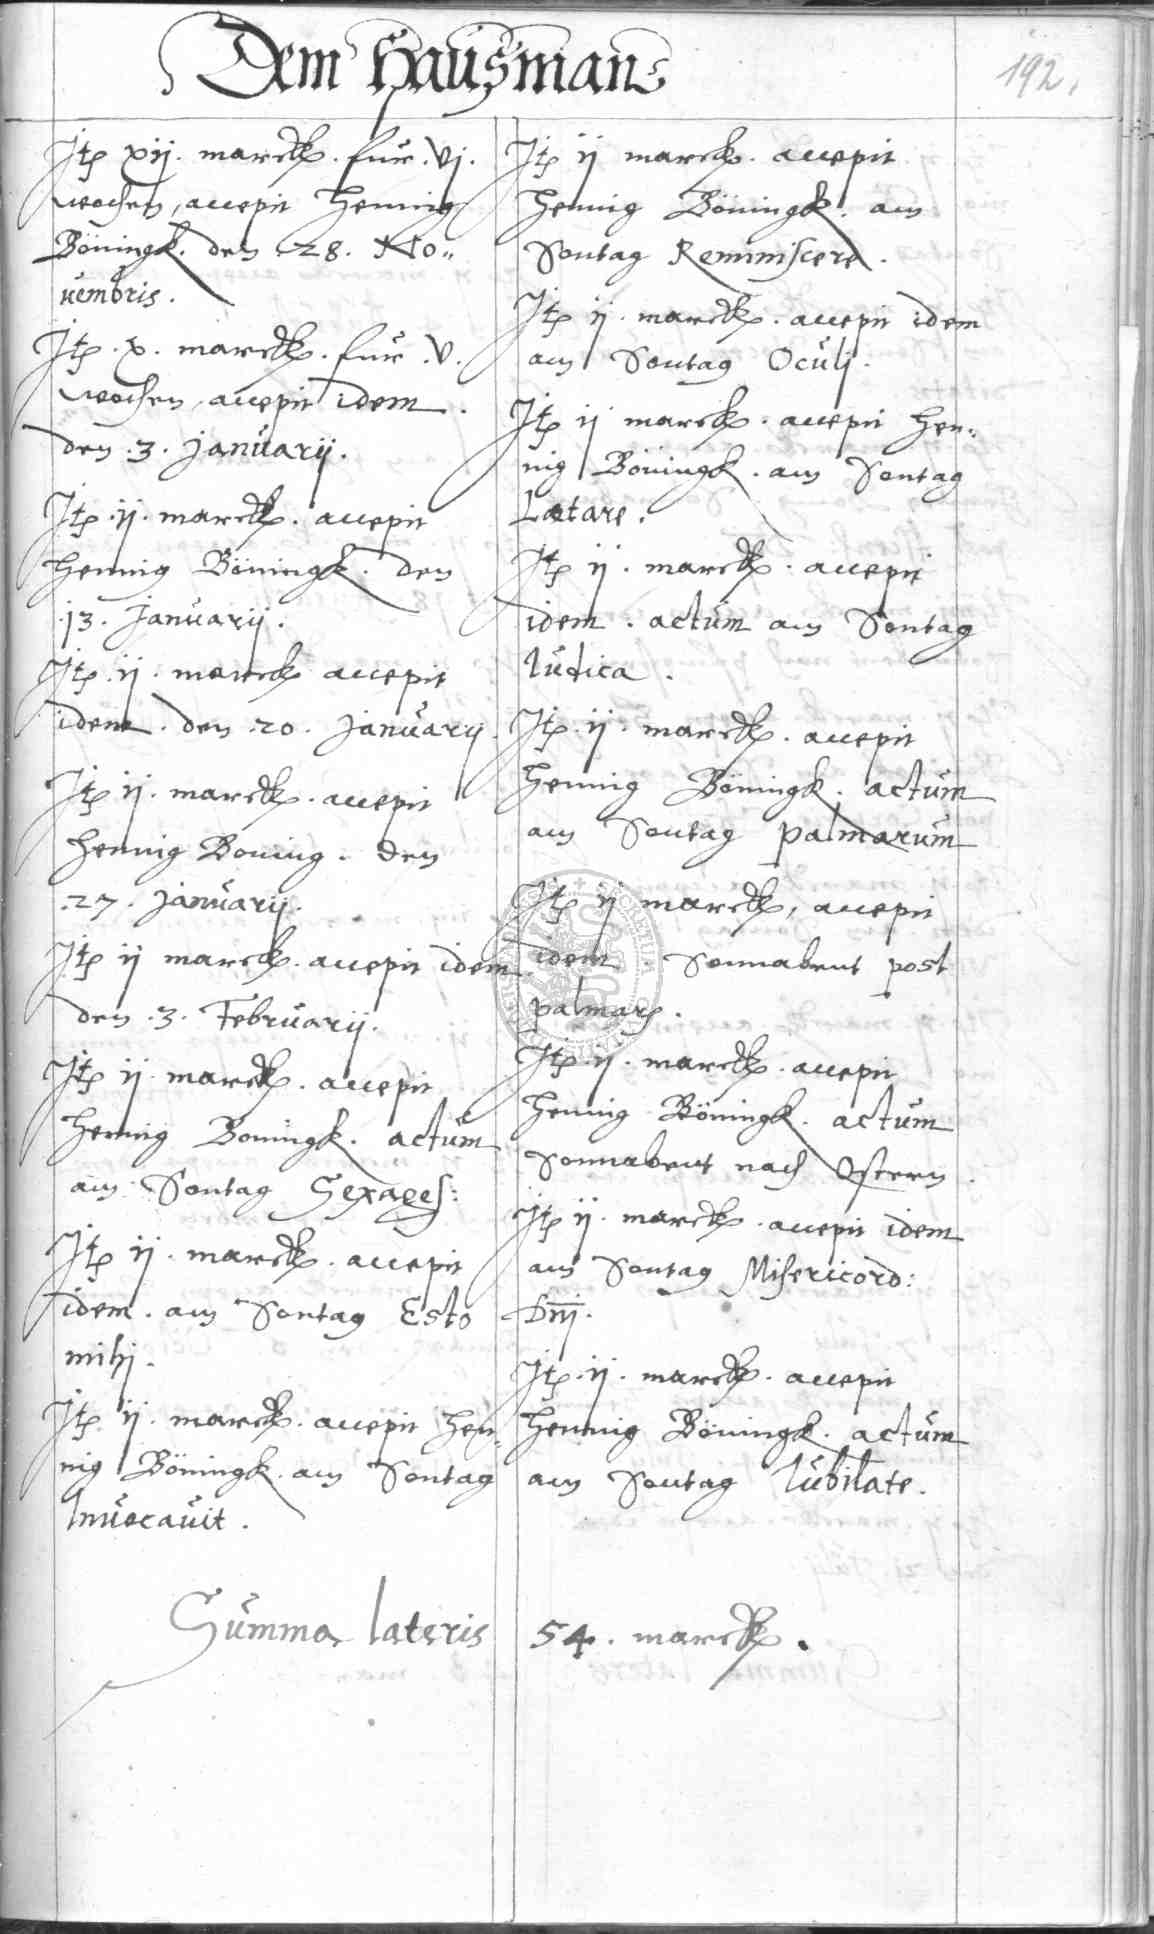 Dem Haußman
192.
Jtz xij. marck. fur. vj.
wochen, accepit Hennig
Böningk. den 28. No„
uembris.
Jtz. x. marck. fur. v.
wochen, accepit idem.
den .3. Januarij.
Jtz. ij. marck. accepit
Hennig Böningk. den
.13. Januarij.
Jtz. ij. marck accepit
idem. den .20. Januarij.
Jtz ij. marck. accepit
Hennig Boning. den
.27. Januarij.
Jtz ij marck. accepit idem
den .3. Februarij.
Jtz ij. marck. accepit
Hennig Boningk. actum
am Sontag Sexages:
Jtz ij. marck. accepit
idem. am Sontag Esto
mihj.
Jtz. ij. marck. accepit Hen„
nig Böningk. am Sontag
Inuocauit.
Jtz ij marck. accepit
Hennig Böningk. am
Sontag Reminiscere.
Jtz ij. marck. accepit idem
am Sontag Oculj.
Jtz ij marck. accepit Hen„
nig Böningk. am Sontag
Lætare.
Jtz ij. marck. accepit
idem. actum am Sontag
Iudica.
Jtz. ij. marck. accepit
Hennig Böningk. actum
am Sontag palmarum
Jtz ij marck, accepit
idem. Sonnabent post
palmarum.
Jtz. ij. marck. accepit
Hennig Böningk. actum
Sonnabent nach Ostern.
Jtz ij. marck. accepit idem
am Sontag Misericord:
Dnj.
Jtz. ij. marck. accepit
Hennig Böningk. actum
am Sontag Iubilate.
Summa lateris 54. marck.